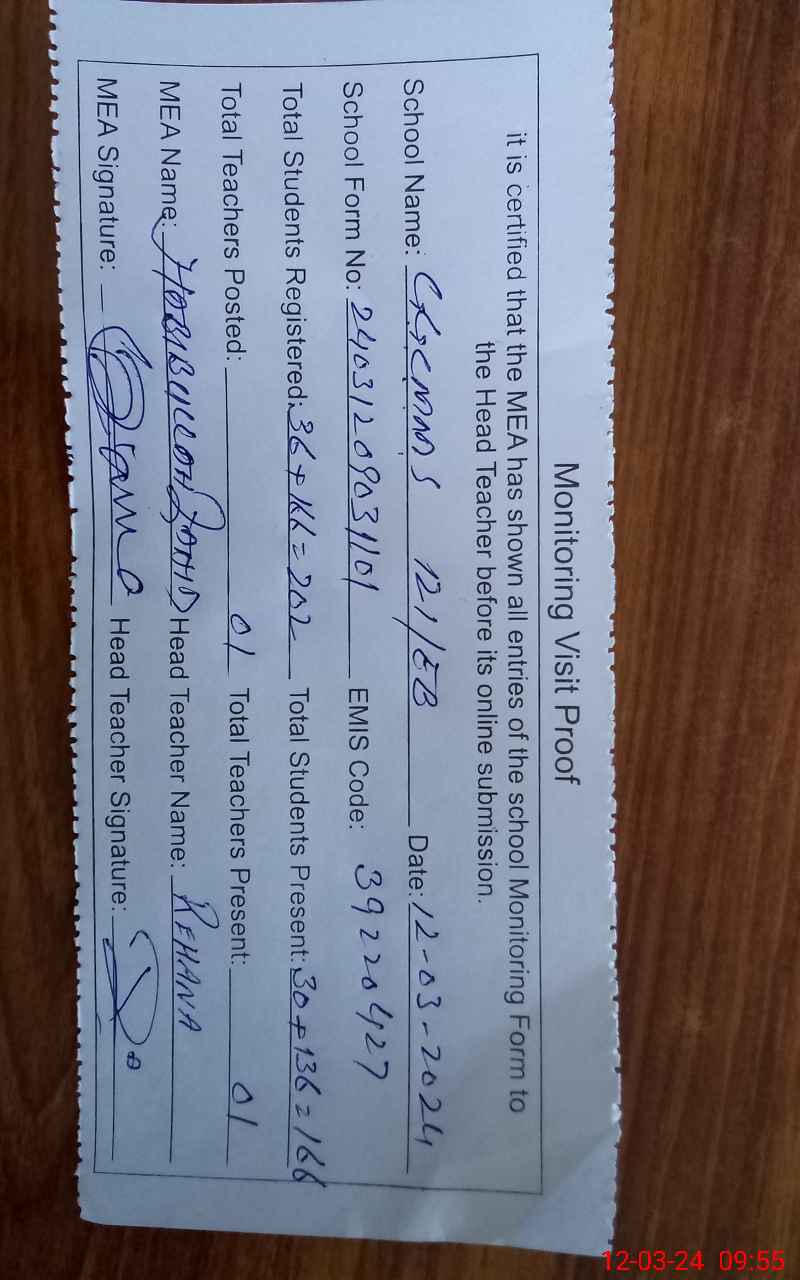 Monitoring Visit Proof
it is certified that the MEA has shown all entries of the school Monitoring Form to
the Head Teacher before its online submission.
School Name: 121/EB Date: 12-03-2024
School Form No: 24031209031101 EMIS Code: 39220427
Total Students Registered: 36+166=202 Total Students Present: 30+136=166
Total Teachers Posted: 01 Total Teachers Present: 01
MEA Name: Head Teacher Name: REHANA
MEA Signature: Head Teacher Signature:
12-03-24 09:55